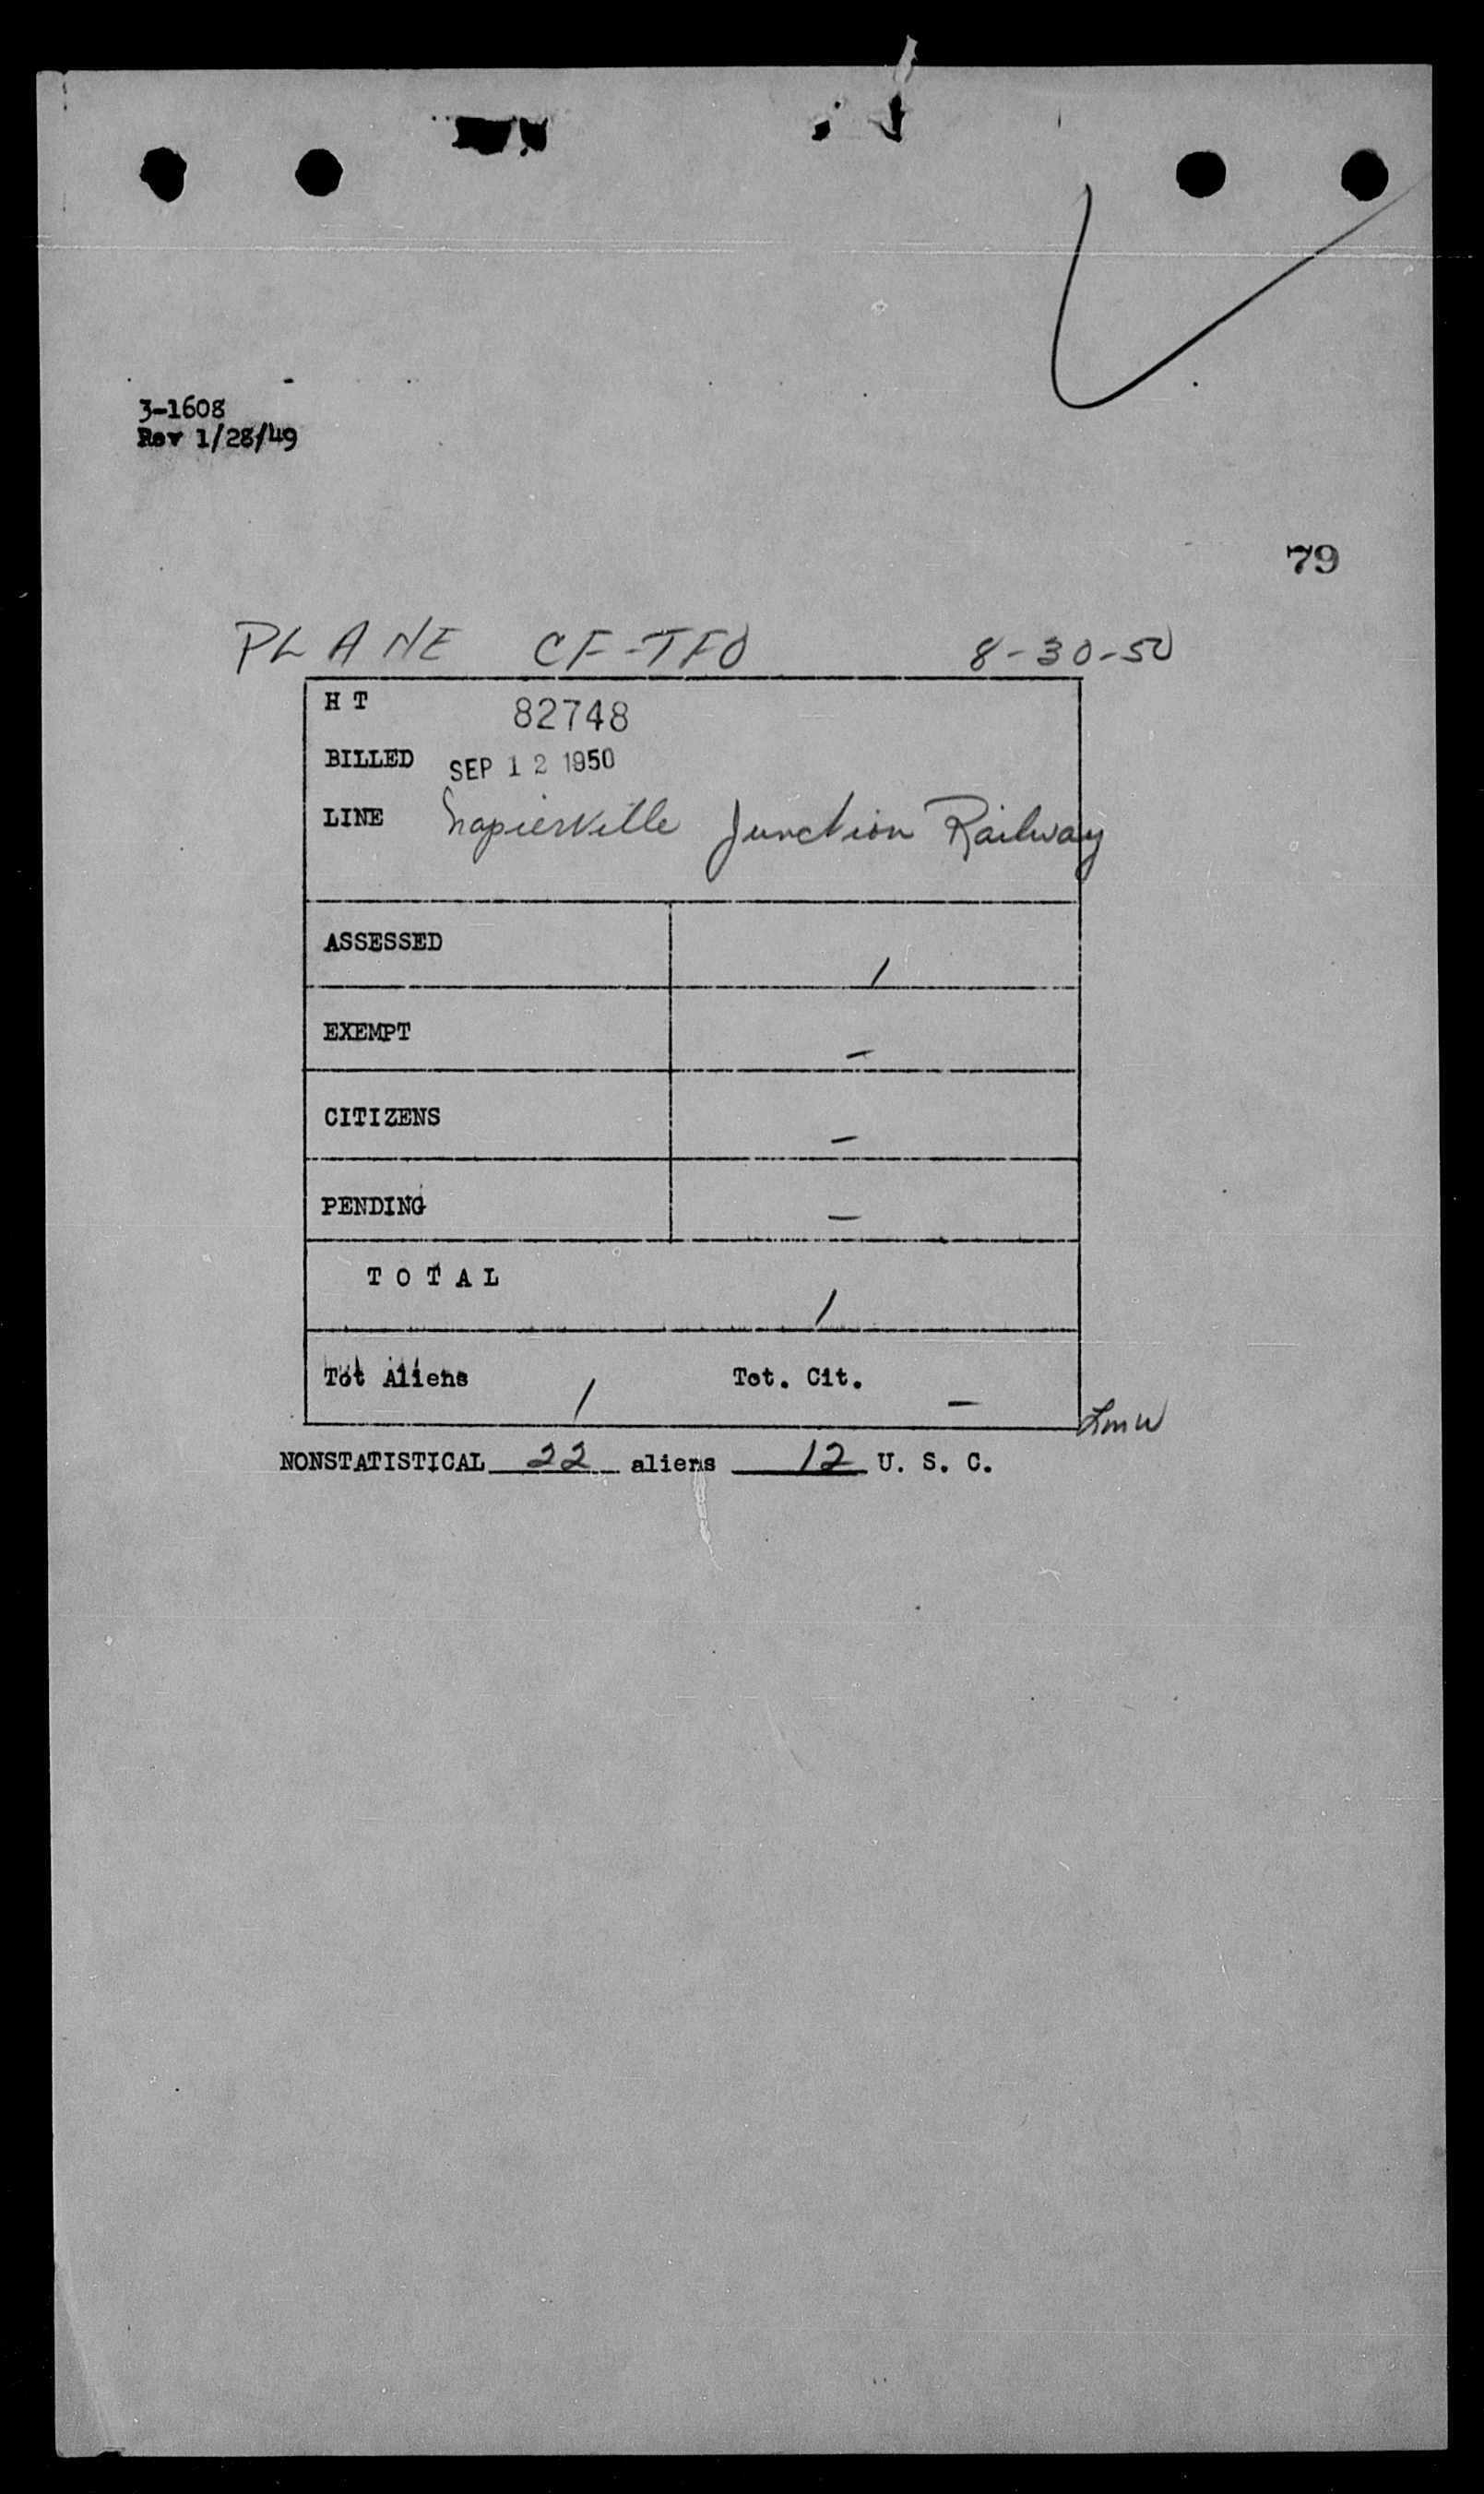 3-1608
Rev 1/28/49
79
PLANE CF-TFO 8-30-50
H T 82748
BILLED SEP 12 1950
LINE Napierville Junction Railway
ASSESSED 1
EXEMPT -
CITIZENS -
PENDING -
TOTAL 1
Tot Aliens 1 Tot. Cit. -
LMW
NONSTATISTICAL 22 aliens 12 U. S. C.